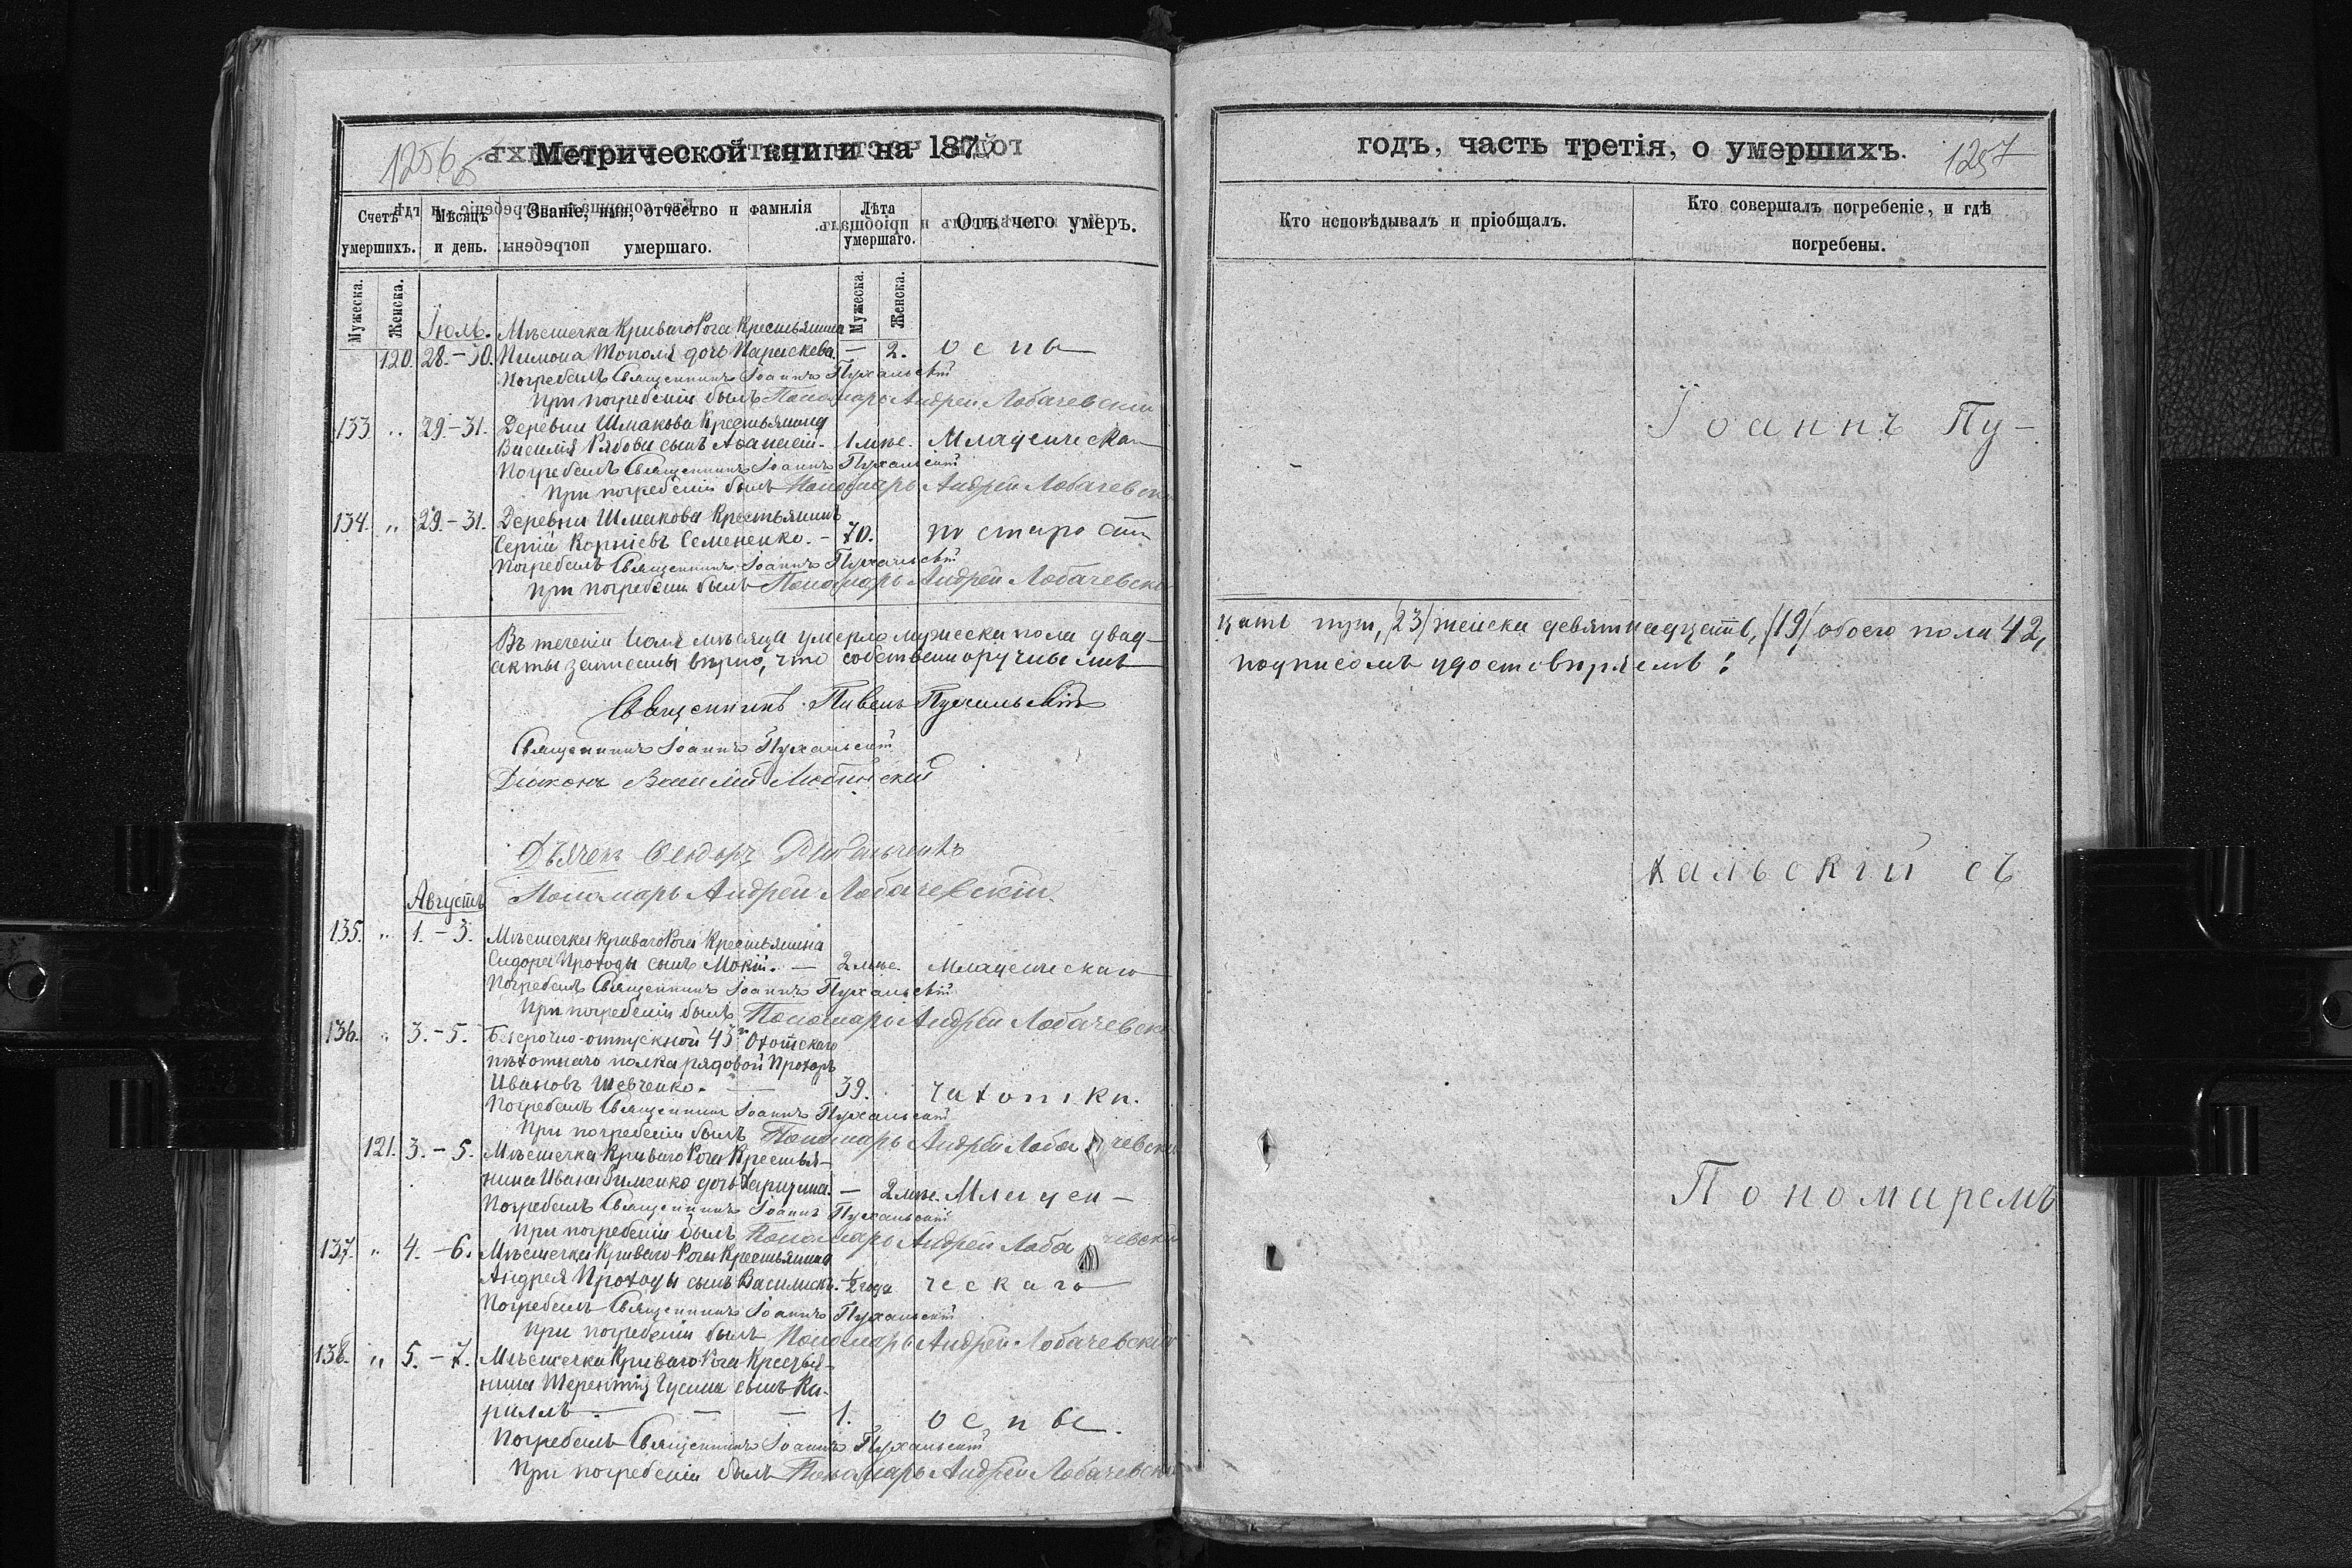 1256
Метрической книги на 187
Счетъ умершихъ.
Мѣсяцъ и день.
Званіе, имя, отчество и фамилія умершаго.
Лѣта умершаго.
Отъ чего умеръ.
Мужеска.
Женска.
Мужеска.
Женска.
Іюль. Мѣстечка Криваго Рога Крестьянина
120. 28.-30. Пимона Тополя дочь Параскева. — 2. оспы
Погребалъ Священникъ Іоаннъ Пухальскій
При погребеніи былъ Пономарь Андрей Лобачевскій
133 „ 29.-31. Деревни Шмакова Крестьянина
Василія Рябова сынъ Аѳанасій. 1 мѣс. Младенческа
Погребалъ Священникъ Іоаннъ Пухальскій
При погребеніи былъ Пономарь Андрей Лобачевскі
134. „ 29.-31. Деревни Шмакова Крестьянинъ
Сергій Корніевъ Семененко. - 70. по старости
Погребалъ Священникъ Іоаннъ Пухальскій
При погребеніи былъ Пономарь Андрей Лобачевскі
Въ теченіи Іюля мѣсяца умерло мужеска пола двад-
акты записаны вѣрно, что собственноручнымъ
Священникъ Павелъ Пухальскій
Священникъ Іоаннъ Пухальскій
Діаконъ Василій
Дьячекъ Ѳеодоръ
Пономарь Андрей Лобачевскій.
Августъ
135. „ 1.-3. Мѣстечка Криваго Рога Крестьянина
Сидора Проходы сынъ Мокій. — 2 мѣс. Младенческаго
Погребалъ Священникъ Іоаннъ Пухальскій
При погребеніи былъ Пономарь Андрей Лобачевскі
136. „ 3.-5. Безсрочно-отпускной 43го Охотскаго
пѣхотнаго полка рядовой Прохоръ
Ивановъ Шевченко. — 39. чахотки.
Погребалъ Священникъ Іоаннъ Пухальскій
При погребеніи былъ Пономарь Андрей Лобачевскі
121. 3.-5. Мѣстечка Криваго Рога Крестья-
нина Ивана дочь Харитина. — 2 мѣс. Младен-
Погребалъ Священникъ Іоаннъ Пухальскій
При погребеніи былъ Пономарь Андрей Лобачевскі
137. „ 4.-6. Мѣстечка Криваго Рога Крестьянина
Андрея Проходы сынъ Василискъ. ½ года ческаго
Погребалъ Священникъ Іоаннъ Пухальскій
При погребеніи былъ Пономарь Андрей Лобачевскій
138. „ 5.-7. Мѣстечка Криваго Рога Крестья-
нина Терентія Гусака сынъ Ки-
риллъ — — — 1. оспы.
Погребалъ Священникъ Іоаннъ Пухальскій
При погребеніи былъ Пономарь Андрей Лобачевскі
годъ, часть третія, о умершихъ.
1257
Кто исповѣдывалъ и пріобщалъ.
Кто совершалъ погребеніе, и гдѣ погребены.
Іоаннъ Пу-
цать три, /23/ женска девятнадцать, /19/ обоего пола 42,
подписомъ удостовѣряемъ:
хальскій съ
Пономаремъ